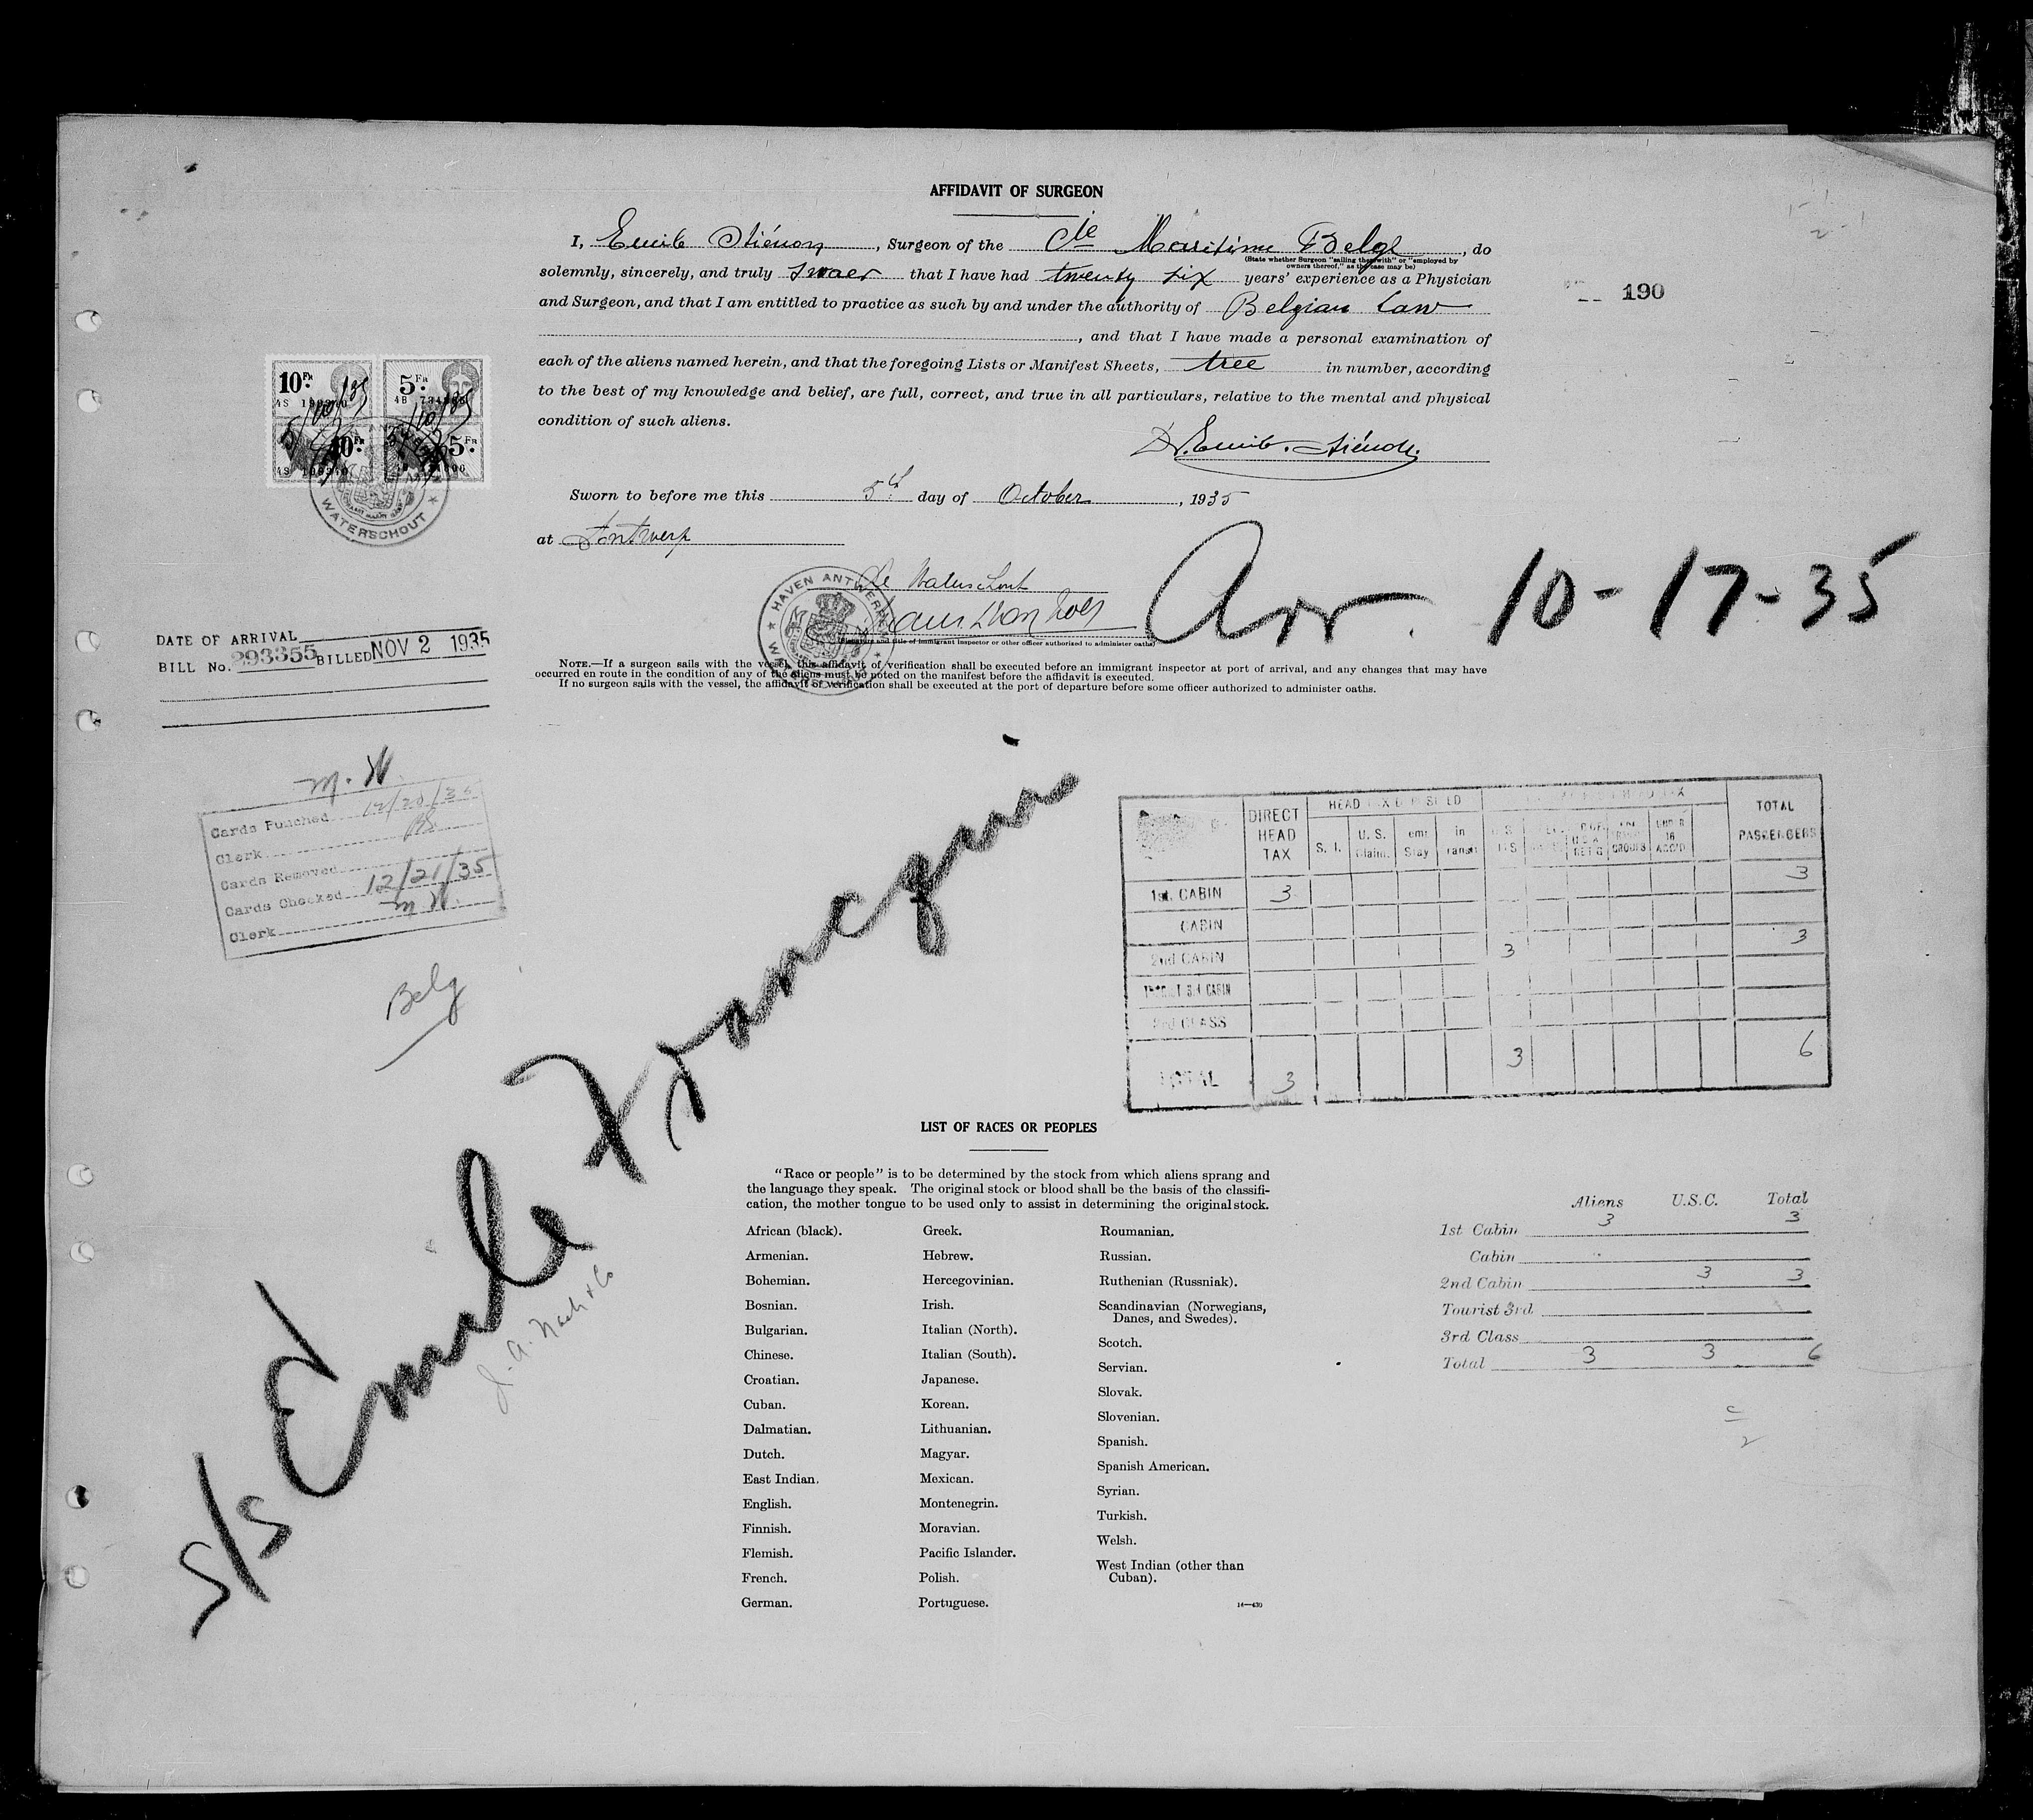 AFFIDAVIT OF SURGEON
I, Emile Stiénon, Surgeon of the Cie Maritime Belge, do
(State whether Surgeon "sailing therewith" or "employed by
owners thereof," as the case may be)
solemnly, sincerely, and truly swaer that I have had twenty six years' experience as a Physician
and Surgeon, and that I am entitled to practice as such by and under the authority of Belgian Law
, and that I have made a personal examination of
each of the aliens named herein, and that the foregoing Lists or Manifest Sheets, tree in number, according
to the best of my knowledge and belief, are full, correct, and true in all particulars, relative to the mental and physical
condition of such aliens.
Dr. Emile Stiénon.
190
10 Fr 5 Fr
10 Fr 5 Fr
WATERSCHOUT
Sworn to before me this 5th day of October, 1935
at Antwerp
De Waterschout
HAVEN ANTWERPEN
(Signature and title of immigrant inspector or other officer authorized to administer oaths)
Arr. 10-17-35
DATE OF ARRIVAL
BILL No. 293355 BILLED NOV 2 1935
NOTE.—If a surgeon sails with the vessel, this affidavit of verification shall be executed before an immigrant inspector at port of arrival, and any changes that may have
occurred en route in the condition of any of the aliens must be noted on the manifest before the affidavit is executed.
If no surgeon sails with the vessel, the affidavit of verification shall be executed at the port of departure before some officer authorized to administer oaths.
M. W.
Cards Punched 12/20/35
Clerk
Cards Removed
Cards Checked 12/21/35
Clerk M W.
Belg
S/S Emile Francqui
J. A. Nash & Co
DIRECT HEAD TAX
HEAD TAX DEPOSITED
HEAD TAX
TOTAL PASSENGERS
S. I.
U. S. Claim.
in Transit
UNDER 16 ACC'D
1st. CABIN 3 3
CABIN
2nd CABIN 3 3
TOURIST 3rd CABIN
3rd CLASS
TOTAL 3 3 6
LIST OF RACES OR PEOPLES
"Race or people" is to be determined by the stock from which aliens sprang and
the language they speak. The original stock or blood shall be the basis of the classifi-
cation, the mother tongue to be used only to assist in determining the original stock.
African (black).
Armenian.
Bohemian.
Bosnian.
Bulgarian.
Chinese.
Croatian.
Cuban.
Dalmatian.
Dutch.
East Indian.
English.
Finnish.
Flemish.
French.
German.
Greek.
Hebrew.
Hercegovinian.
Irish.
Italian (North).
Italian (South).
Japanese.
Korean.
Lithuanian.
Magyar.
Mexican.
Montenegrin.
Moravian.
Pacific Islander.
Polish.
Portuguese.
Roumanian.
Russian.
Ruthenian (Russniak).
Scandinavian (Norwegians,
Danes, and Swedes).
Scotch.
Servian.
Slovak.
Slovenian.
Spanish.
Spanish American.
Syrian.
Turkish.
Welsh.
West Indian (other than
Cuban).
Aliens U.S.C. Total
1st Cabin 3 3
Cabin
2nd Cabin 3 3
Tourist 3rd
3rd Class
Total 3 3 6